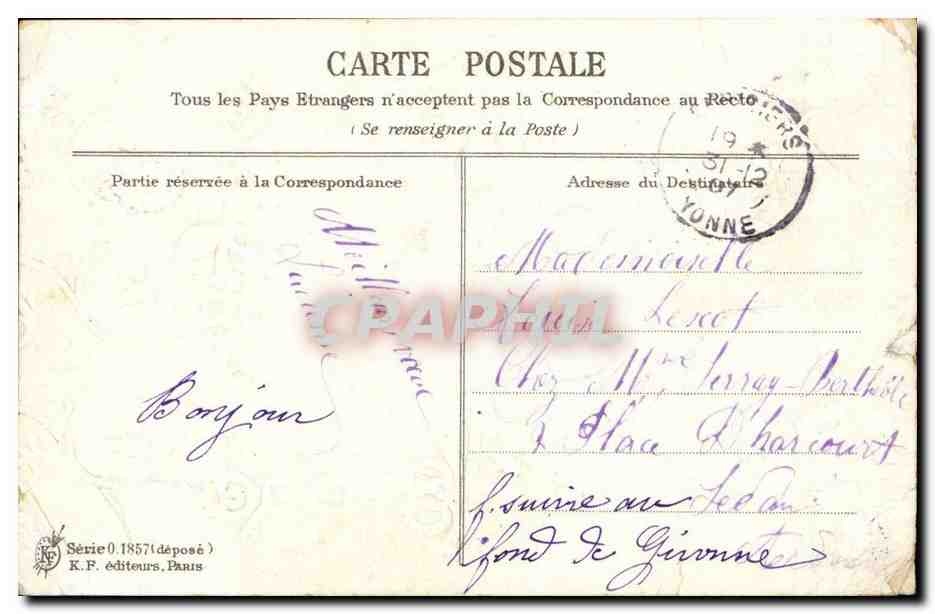 CARTE POSTALE
Tous les Pays Etrangers n'acceptent pas la Correspondance au Recto
(Se renseigner à la Poste)
19 *
31-12
07
YONNE
Partie réservée à la Correspondance
Adresse du Destinataire
Bonjour
Mademoiselle
Lescot
Chez Mme
Place d'harcourt
Sedan
f. suivre au
fond de Givonne
CPAPHIL
KF
Série 0.1857 (déposé)
K.F. éditeurs, PARIS